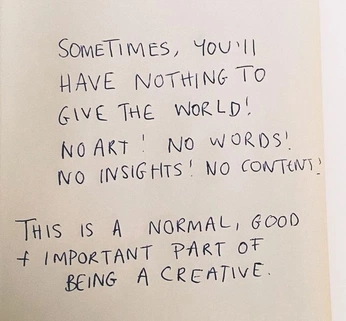 SOMETIMES, YOU'll
HAVE NOTHING TO
GIVE THE WORLD!
NO ART! NO WORDS!
NO INSIGHTS! NO CONTENT!
THIS IS A NORMAL, GOOD
+ IMPORTANT PART OF
BEING A CREATIVE.